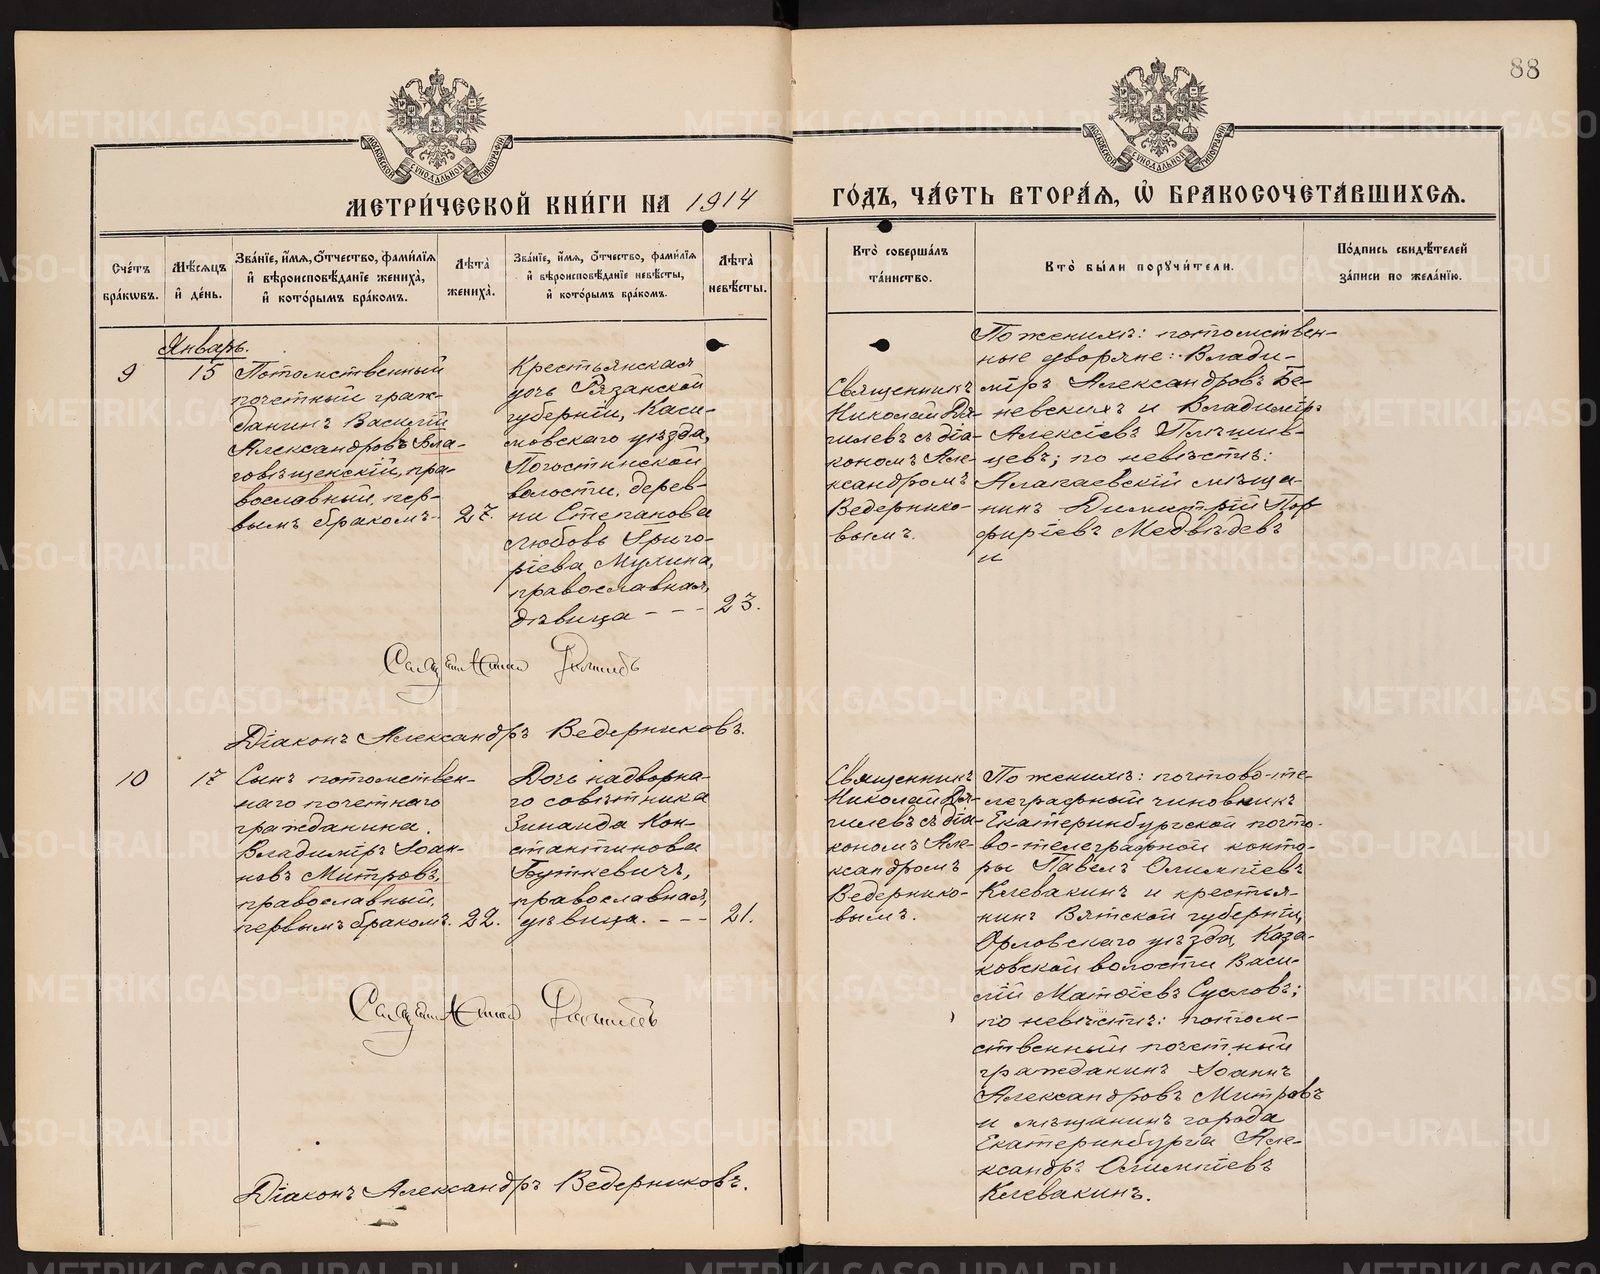 88
МОСКОВСКОЙ СѴНОДАЛЬНОЙ ТИПОГРАФІИ
МОСКОВСКОЙ СѴНОДАЛЬНОЙ ТИПОГРАФІИ
МЕТРИ́ЧЕСКОЙ КНИ́ГИ НА 1914
ГО́ДЪ, ЧА́СТЬ ВТОРА́Я, Ѡ҆ БРАКОСОЧЕТА́ВШИХСЯ.
Сче́тъ
бра́кѡвъ.
Мѣ́сяцъ
и҆ де́нь.
Зва́нїе, и҆́мя, ѻ҆́тчество, фами́лїя
и҆ вѣроисповѣ́данїе жениха̀,
и҆ кото́рымъ бра́комъ.
Лѣ́та̀
жениха̀.
Зва́нїе, и҆́мя, ѻ҆́тчество, фами́лїя
и҆ вѣроисповѣ́данїе невѣ́сты,
и҆ кото́рымъ бра́комъ.
Лѣ́та̀
невѣ́сты.
Кто̀ соверша́лъ
та́инство.
Кто̀ бы́ли порꙋчи́тели.
По́дпись свидѣ́телей
за́писи по жела́нїю.
Январь.
9
15
Потомственный
почетный граж-
данинъ Василій
Александровъ Бла-
говѣщенскій, пра-
вославный, пер-
вымъ бракомъ
27.
Крестьянская
дочь Рязанской
губерніи, Каси-
мовскаго уѣзда,
Погостинской
волости, дерев-
ни Степанова
Любовь Григо-
ріева Мухина,
православная,
дѣвица - - -
23.
Священникъ
Николай
съ діа-
кономъ Але-
ксандромъ
Ведернико-
вымъ.
По женихѣ: потомствен-
ные дворяне: Влади-
міръ Александровъ Бе-
невскихъ и Владиміръ
Алексіевъ
по невѣстѣ:
Алапаевскій мѣща-
нинъ Димитрій Пор-
фиріевъ Медвѣдевъ
и
Діаконъ Александръ Ведерниковъ.
10
17
Сынъ потомствен-
наго почетнаго
гражданина
Владиміръ Іоан-
новъ Митровъ,
православный,
первымъ бракомъ.
22.
Дочь надворна-
го совѣтника
Зинаида Кон-
стантинова
Буткевичъ,
православная,
дѣвица. - - -
21.
Священникъ
Николай
съ діа-
кономъ Але-
ксандромъ
Ведернико-
вымъ.
По женихѣ: почтово-те-
леграфный чиновникъ
Екатеринбургской почто-
во-телеграфной конто-
ры Павелъ Олимпіевъ
Клевакинъ и крестья-
нинъ Вятской губерніи,
Орловскаго уѣзда, Каза-
ковской волости Васи-
лій Матѳіевъ Сусловъ;
по невѣстѣ: потом-
ственный почетный
гражданинъ Іоаннъ
Александровъ Митровъ
и мѣщанинъ города
Екатеринбурга Але-
ксандръ Олимпіевъ
Клевакинъ.
Діаконъ Александръ Ведерниковъ.
METRIKI.GASO-URAL.RU